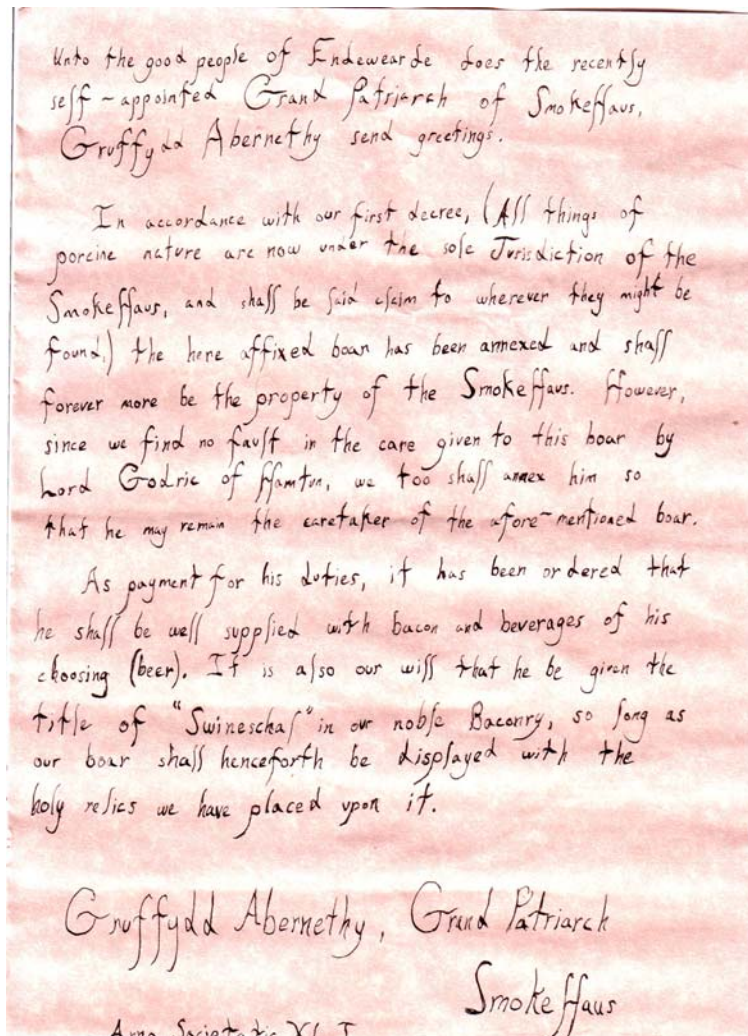 Unto the good people of Endewearde does the recently
self-appointed Grand Patriarch of SmokeHaus,
Gruffydd Abernethy send greetings.
In accordance with our first decree, (All things of
porcine nature are now under the sole Jurisdiction of the
SmokeHaus, and shall be laid claim to wherever they might be
found,) the here affixed boar has been annexed and shall
forever more be the property of the SmokeHaus. However,
since we find no fault in the care given to this boar by
Lord Godric of Hamtun, we too shall annex him so
that he may remain the caretaker of the afore-mentioned boar.
As payment for his duties, it has been ordered that
he shall be well supplied with bacon and beverages of his
choosing (beer). It is also our will that he be given the
title of "Swineschal" in our noble Baconry, so long as
our boar shall henceforth be displayed with the
holy relics we have placed upon it.
Gruffydd Abernethy, Grand Patriarch
SmokeHaus
Anno Societatis XLI